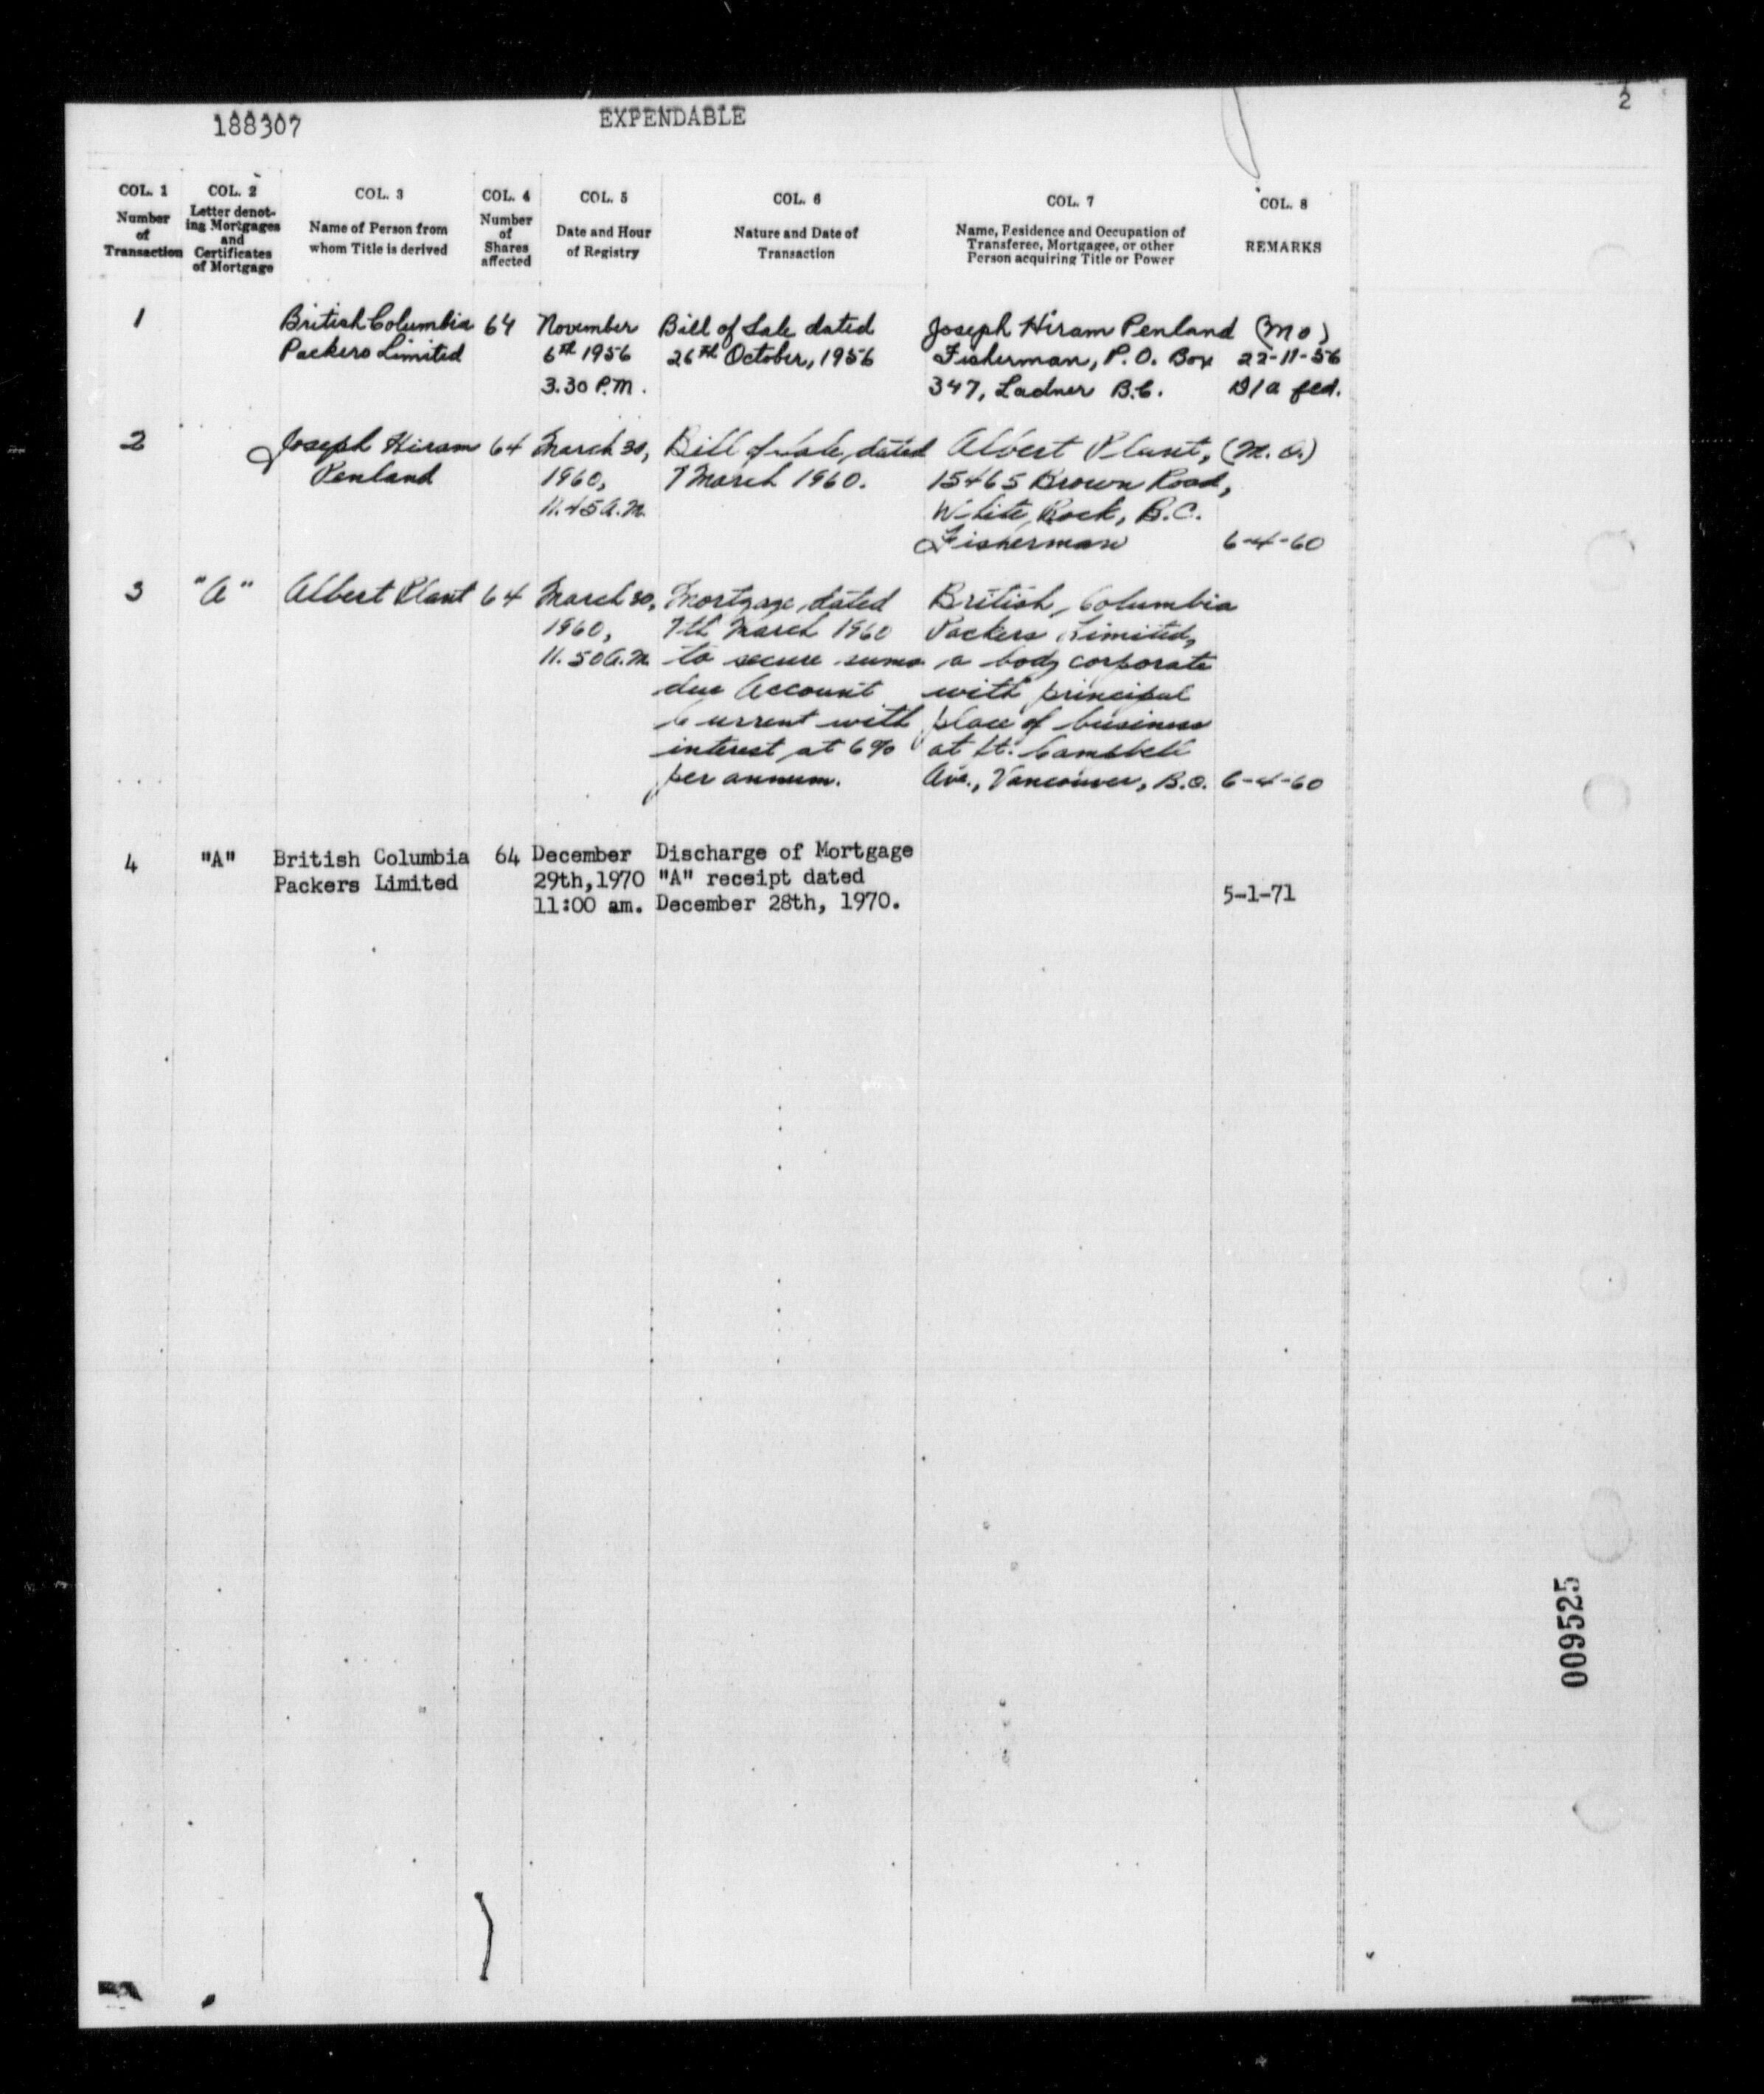 188307
EXPENDABLE
2
COL. 1
Number
of
Transaction
COL. 2
Letter denot-
ing Mortgages
and
Certificates
of Mortgage
COL. 3
Name of Person from
whom Title is derived
COL. 4
Number
of
Shares
affected
COL. 5
Date and Hour
of Registry
COL. 6
Nature and Date of
Transaction
COL. 7
Name, Residence and Occupation of
Transferee, Mortgagee, or other
Person acquiring Title or Power
COL. 8
REMARKS
1
British Columbia
Packers Limited
64
November
6th 1956
3.30 P.M.
Bill of Sale dated
26th October, 1956
Joseph Hiram Penland
Fisherman, P.O. Box
347, Ladner B.C.
(MO)
22-11-56
2
Joseph Hiram
Penland
64
March 30,
1960,
11.45 A.M.
Bill of Sale, dated
7 March 1960.
Albert Plant,
15465 Brown Road,
White Rock, B.C.
Fisherman
(M.O.)
6-4-60
3
"A"
Albert Plant
64
March 30,
1960,
11.50 A.M.
Mortgage, dated
7th March 1960
to secure sums
due Account
Current with
interest at 6%
per annum.
British Columbia
Packers Limited,
a body corporate
with principal
place of business
at ft. Campbell
Ave., Vancouver, B.C.
6-4-60
4
"A"
British Columbia
Packers Limited
64
December
29th,1970
11:00 am.
Discharge of Mortgage
"A" receipt dated
December 28th, 1970.
5-1-71
009525